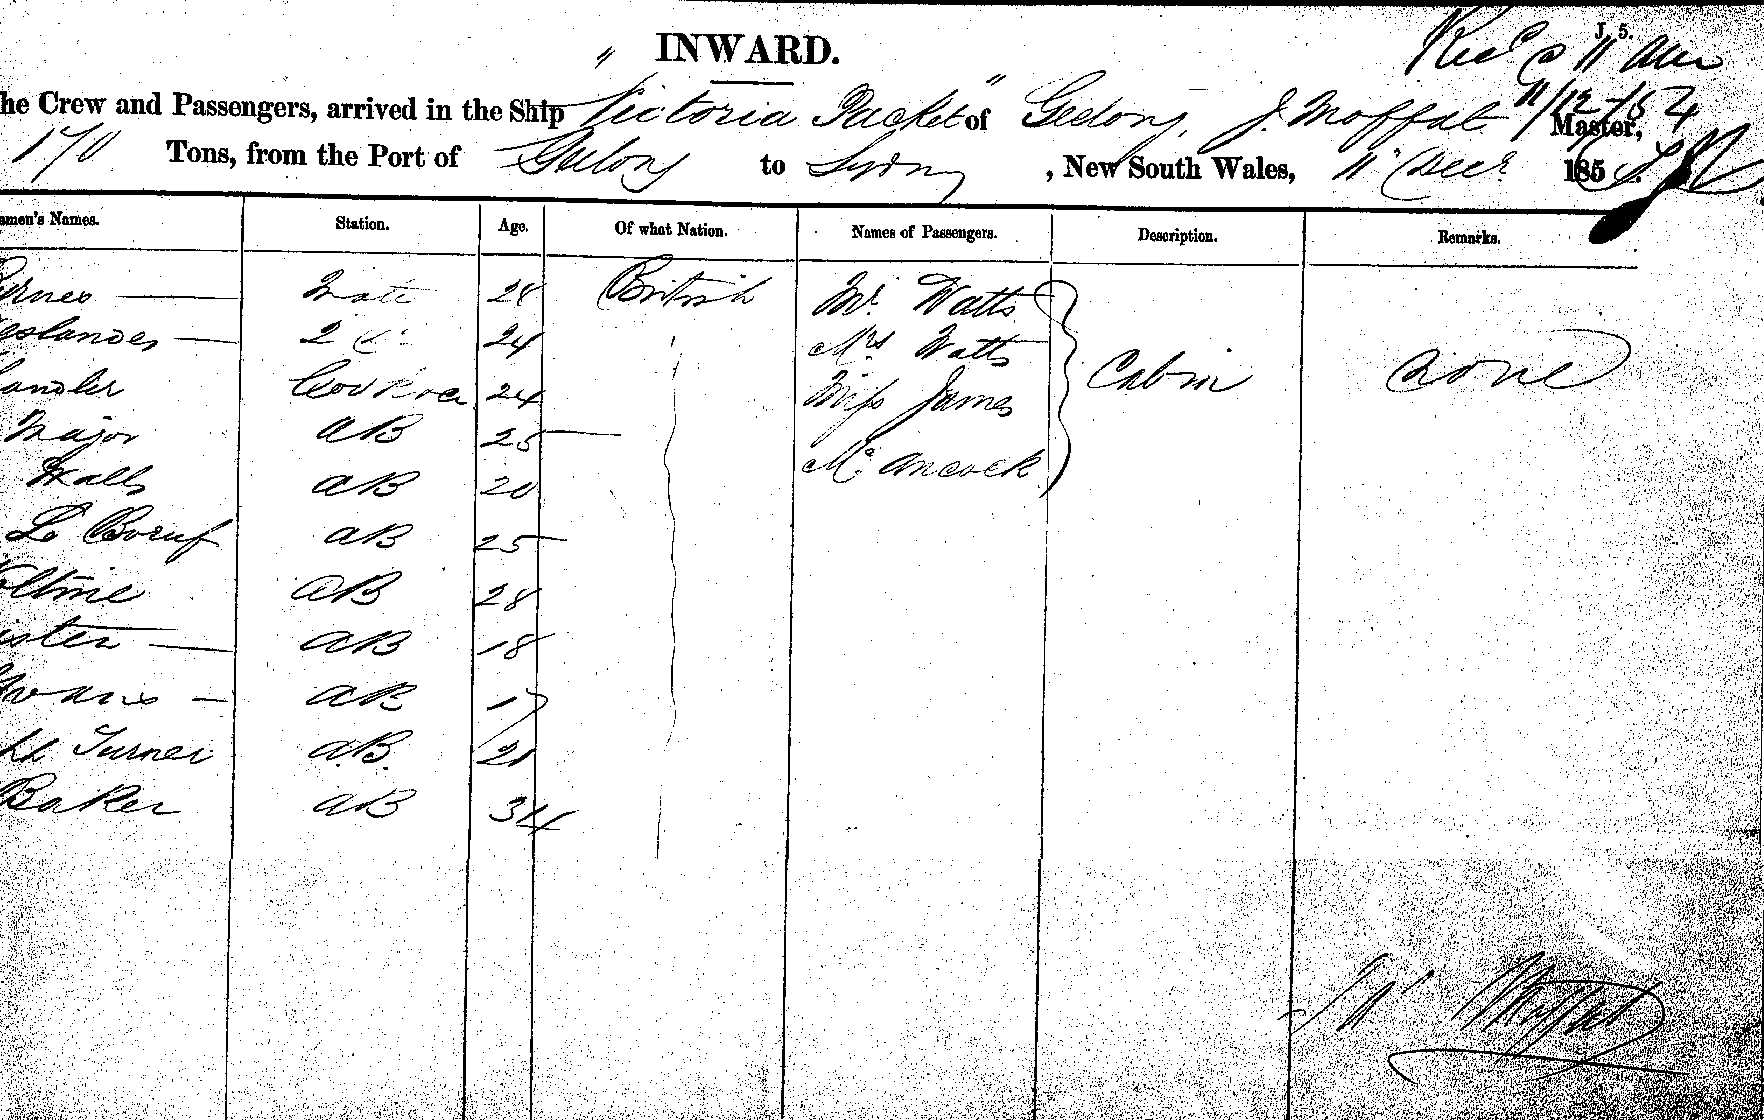 J. 5.
" INWARD.
11 am
11/12/54
he Crew and Passengers, arrived in the Ship Victoria Packet " of Geelong, J. Moffat Master,
170 Tons, from the Port of Geelong to Sydney, New South Wales, 11 Decr 185
men's Names. Station. Age. Of what Nation. Names of Passengers. Description. Remarks.
Mate 28 British Mr. Watts
2 24 Mrs Watts
andler 24 Miss James Cabin None
Major AB 25
Walls AB 20 Ancock
Le Boeuf AB 25
AB 28
ister AB 18
AB 17
Turner A.B. 21
Baker AB 34
Moffat